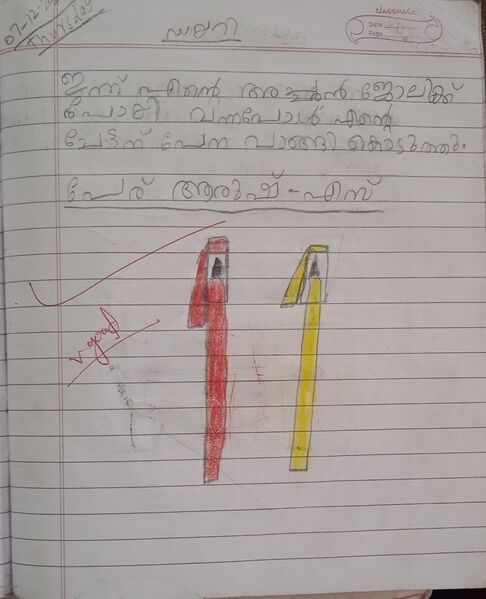 07-12-20
Thursday
classmate
Date
Page
ഡയറി
ഇന്ന് എന്റെ അച്ഛൻ ജോലിക്ക്
പോയി വന്നപോൾ എന്റെ
ചേട്ടന് പേന വാങ്ങി കൊടുത്തു.
പേര് ആരുഷ്-എസ്
v.good